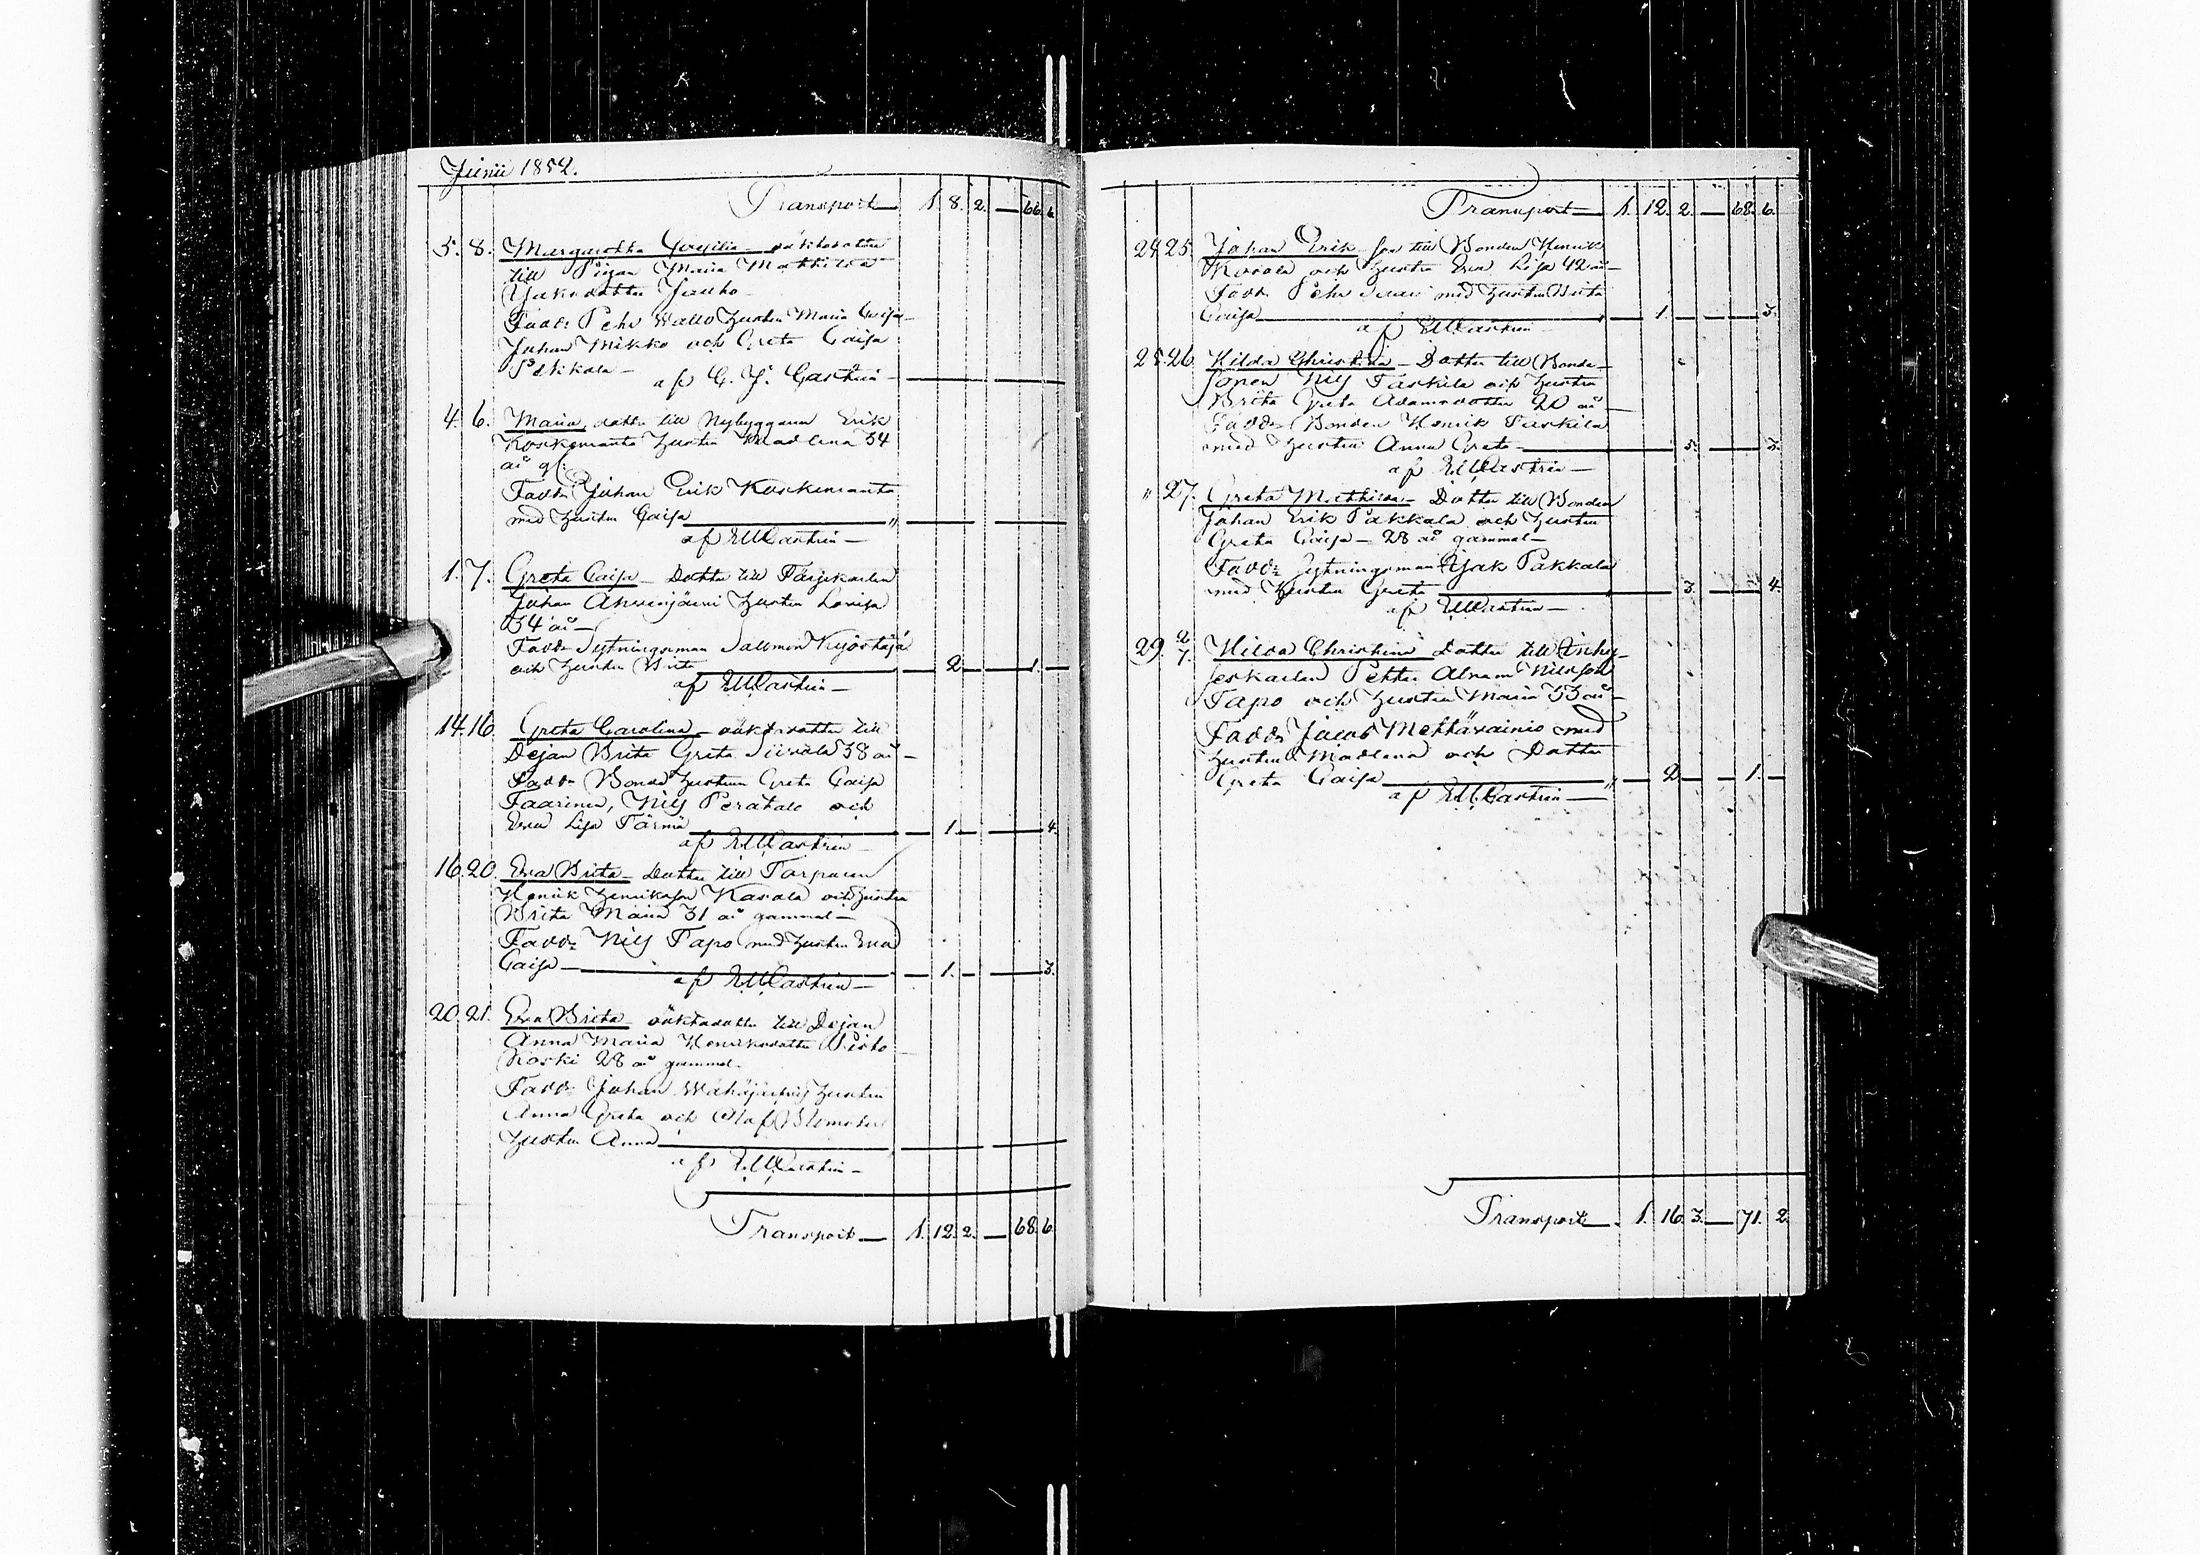 Junii 1852.
Transport 1. 8. 2. — 66. 6.
5. 8. Margaretha Cecilia oäktadotter
till Pigan Maria Mathilda
Jakosdotter Jauho
Fadd: Pehr Wallo hustru Maria Caisa
Johan Mikko och Greta Caisa
Pakkala
af C. J. Castrén
4. 6. Maria, dotter till Nybyggaren Erik
Koskenranta hustru Madlena 34
år gl:
Fadd: Johan Erik Koskenranta
med hustru Caisa
af EMCastrén
1. 7. Greta Caisa Dotter till Färjekarlen
Johan hustru Lovisa
34 år
Fadd: Sytningsman Salomon
och hustru Brita — 2 — 1.
af EMCastrén
14. 16. Greta Carolina oäktadotter till
Dejan Brita Greta 38 år
Fadd: Bonde hustrun Greta Caisa
Taarinen, Nils Peratalo och
Eva Lisa Pärmä — 1. — 4.
af EMCastrén
16. 20. Eva Brita Dotter till Torparen
Henrik Henriksson Kasala och hustru
Brita Maria 31 år gammal
Fadd: Nils Tapo med hustru Eva
Caisa — 1. — 3.
af EMCastrén
20. 21. Eva Brita oäktadotter till Dejan
Anna Maria Henriksdotter
Koski 28 år gammal
Fadd: Johan hustru
Anna Greta och Olof
hustru Anna
af EMCastrén
Transport 1. 12. 2. — 68. 6.
Transport 1. 12. 2. — 68. 6.
24. 25. Johan Erik son till Bonden Henrik
och hustru Eva Lisa 42 år
Fadd: Pehr med hustru Brita
Caisa — 1. — 3.
af EMCastrén
25. 26. Hilda Christina Dotter till Bonde-
sonen Nils Paskila och hustru
Brita Greta Adamsdotter 20 år
Fadd: Bonden Henrik Paskila
med hustru Anna Greta — 5. — 3.
af EMCastrén
" 27. Greta Mathilda Dotter till Bonden
Johan Erik Pakkala och hustru
Greta Caisa 28 år gammal
Fadd: Sytningsman Isak Pakkala
med hustru Greta — 3. — 4.
af EMCastrén
29. 2/7. Hilda Christina Dotter till
Petter Abram Nilsson
Tapo och hustru Maria 33 år
Fadd: Jacob Mettävainio med
hustru Madlena och Dotter
Greta Caisa — 2. — 1.
af EMCastrén
Transport 1. 16. 3. — 71. 2